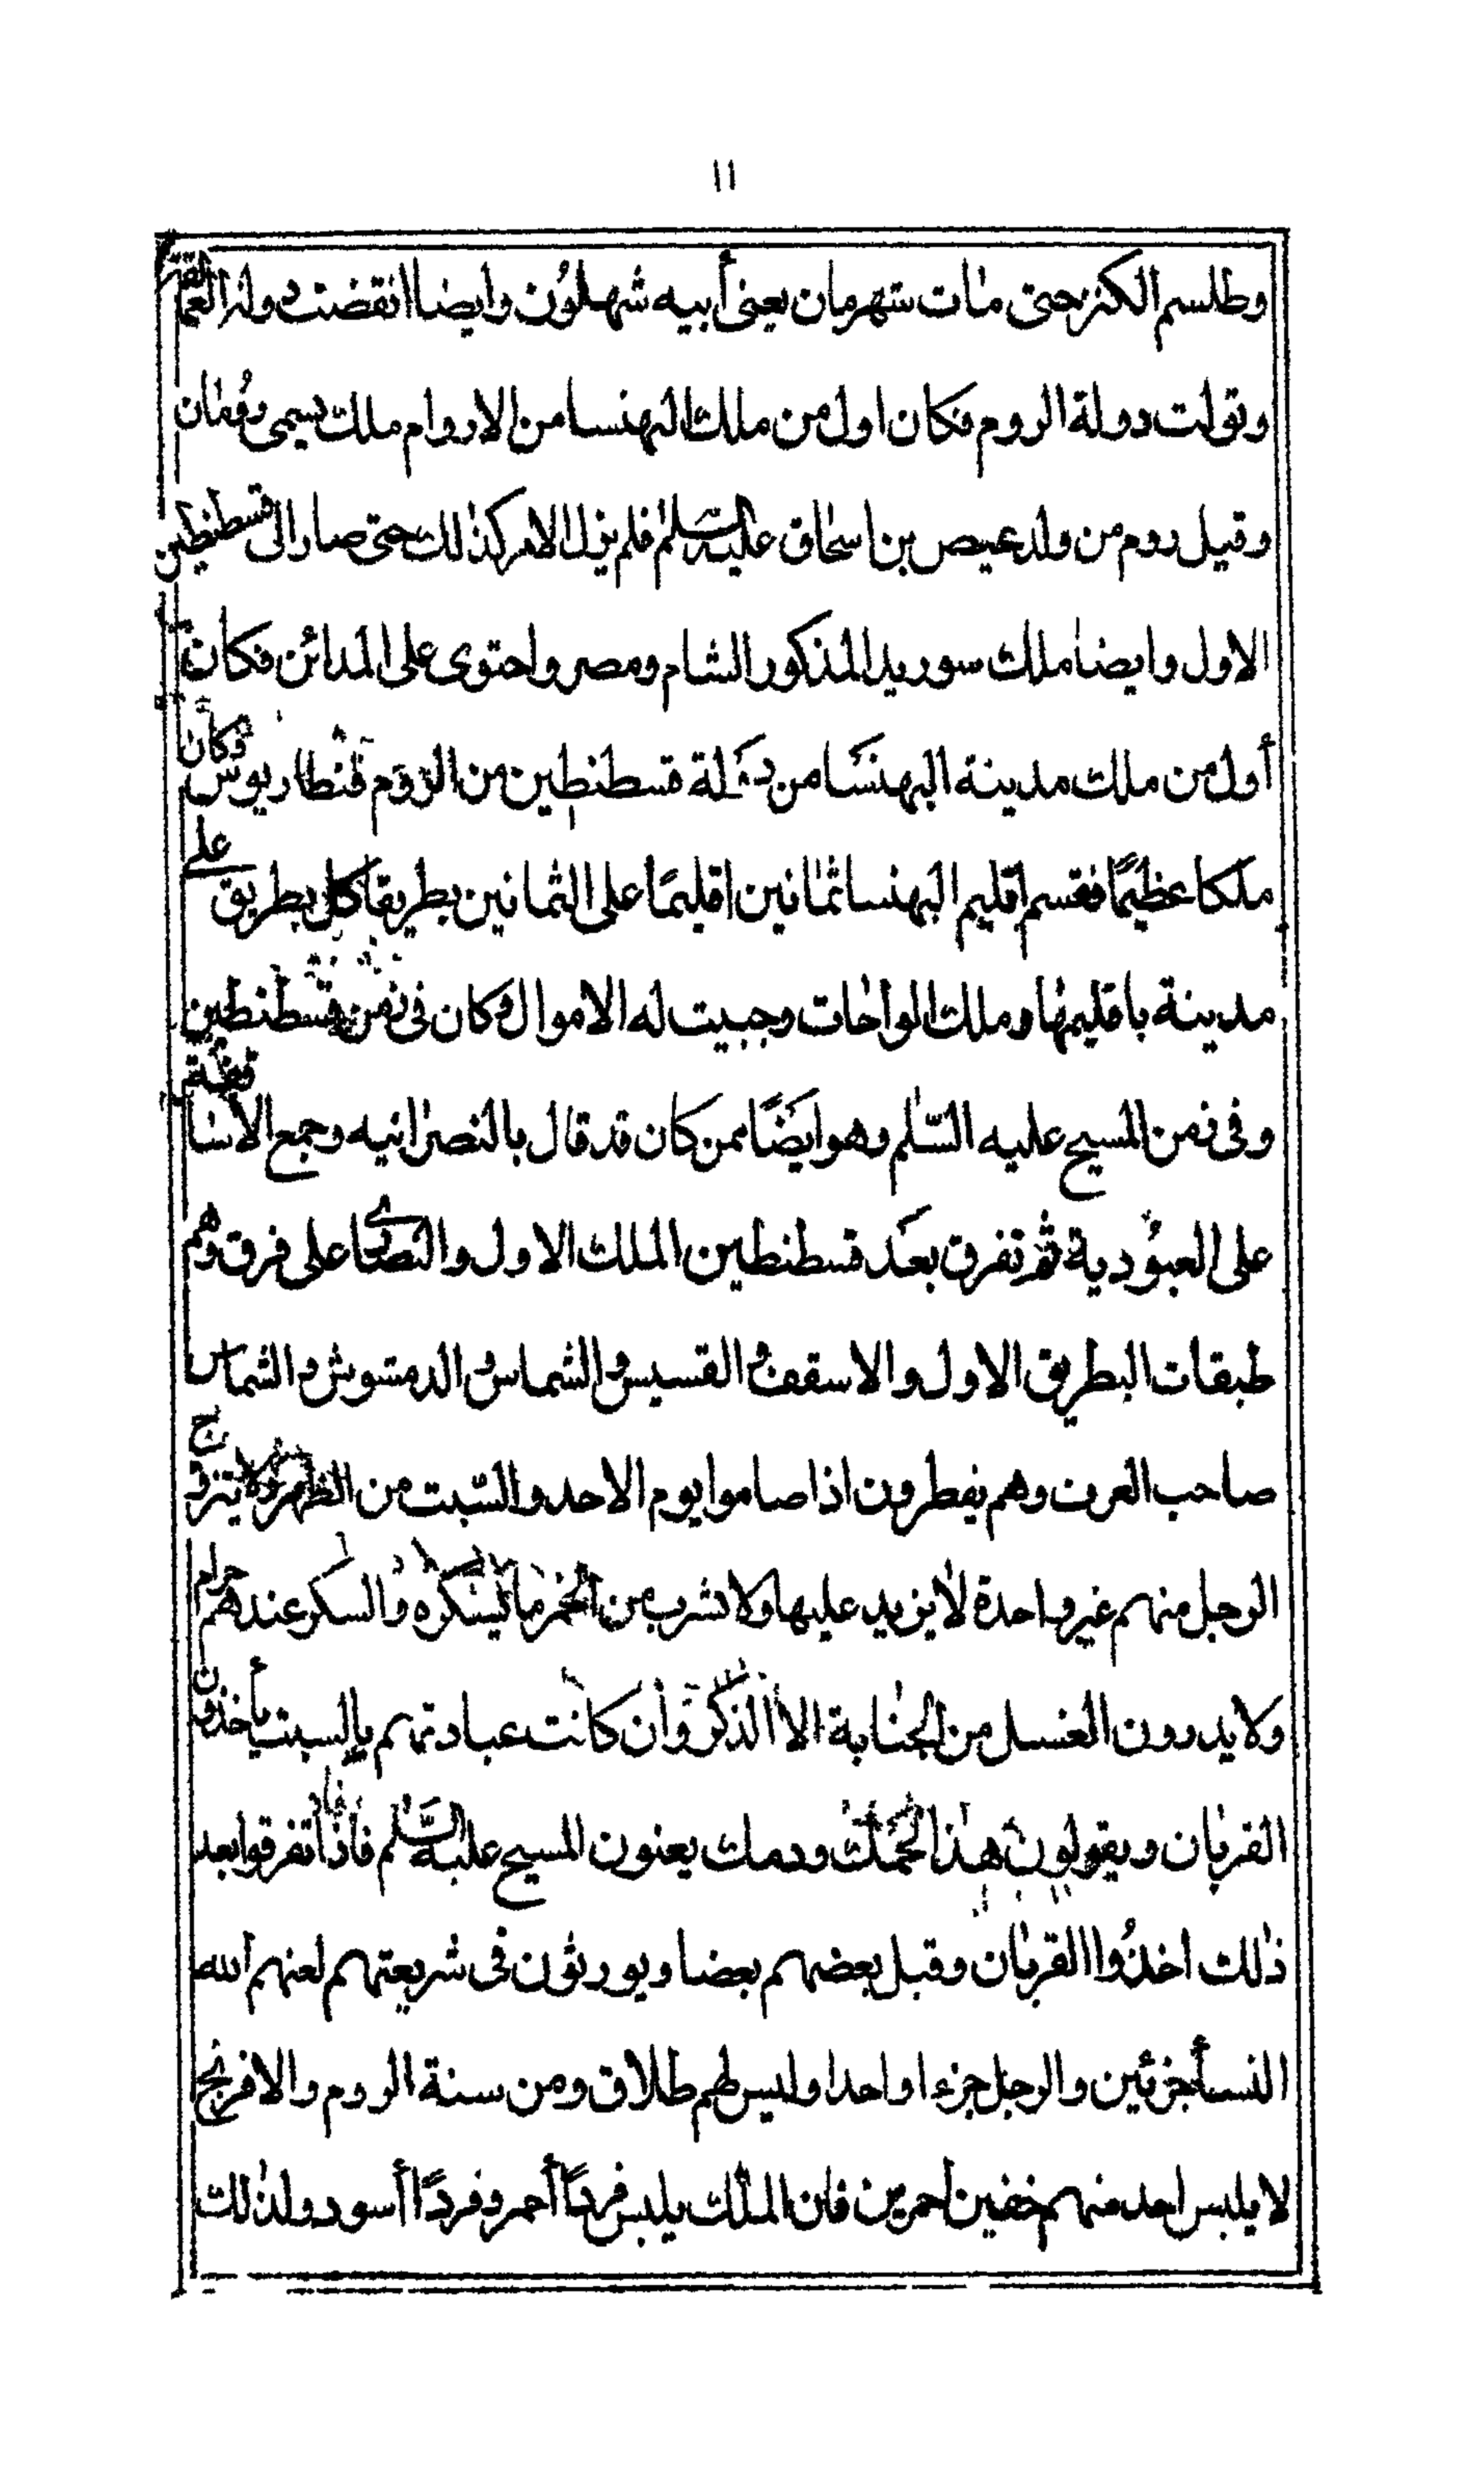 ١١
وطلسم الكنز حتى مات شهرمان يعنى أبيه شهلون وايضا انقضت دولة
وتولت دولة الروم فكان اول من ملك البهنسا من الاروام ملك يسمى رومان
وقيل روم من ولد عيص بن اسحاق عليه السلم فلم يزل الامر كذلك حتى صار الى قسطنطين
الاول وايضا ملك سوريد المذكور الشام ومصر واحتوى على المدائن فكان
أول من ملك مدينة البهنسا من دولة قسطنطين من الروم قنطاريوس وكان
ملكا عظيمًا فقسم اقليم البهنسا ثمانين اقليمًا على الثمانين بطريقا كل بطريق على
مدينة باقليمها وملك الواحات وجبيت له الاموال وكان فى زمن قسطنطين
وفى زمن المسيح عليه السّلم وهو ايضًا ممن كان قد قال بالنصرانيه وجمع الاساقفة
على العبودية ثم تفرق بعد قسطنطين الملك الاول والنصارى على فرق وهم
طبقات البطريق الاول والاسقف والقسيس والشماس والدمتسوش والشماس
صاحب العرف وهم يفطرون اذا صاموا يوم الاحد والسّبت من الظهر ولا يتزوج
الرجل منهم غير واحدة لا يزيد عليها ولا تشرب من الخمر ما يسكره والسكر عندهم حرام
ولا يدرون الغسل من الجنابة الا الذكر وأن كانت عبادتهم بالسبت يأخذون
القربان ويقولون هذا لحمك ودمك يعنون المسيح عليه السّلم فاذا تفرقوا بعد
ذلك اخذُوا القربان وقبل بعضهم بعضا ويورثون فى شريعتهم لعنهم الله
النسأ جزئين والرجل جزءا واحدا وليس لهم طلاق ومن سنة الروم والافرنج
لا يلبس احد منهم خفين احمرين فان الملك يلبس فردًا أحمر وفردًا أسود ولذلك